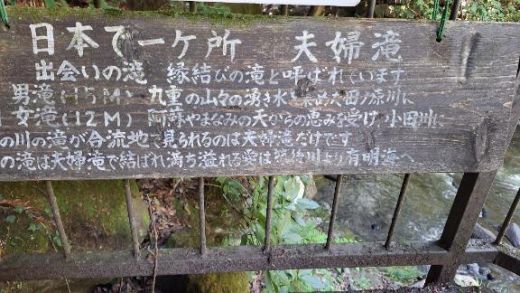 日本で一ケ所 夫婦滝
出会いの滝 縁結びの滝と呼ばれています
男滝(15M) 九重の山々の湧き水を集め田の原川に
女滝(12M) 阿蘇やまなみの天からの恵みを受け 小田川に
の川の滝が合流地で見られるのは夫婦滝だけです
の滝は夫婦滝で結ばれ満ち溢れる愛は筑後川より有明海へ